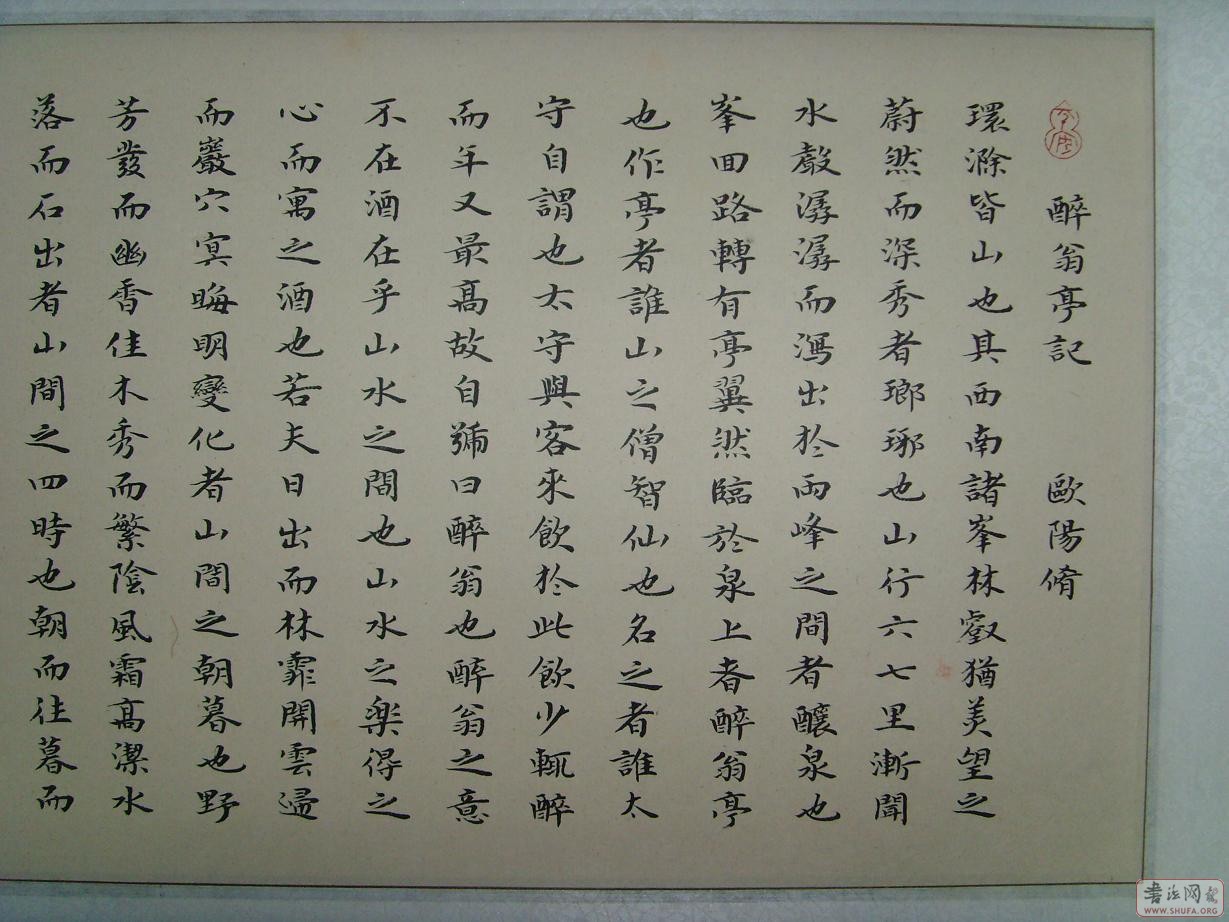 醉翁亭記 歐陽脩
環滁皆山也其西南諸峯林叡猶美望之
蔚然而深秀者瑯琊也山行六七里漸聞
水聲潺潺而瀉出於兩峰之間者釀泉也
峯回路轉有亭翼然臨於泉上者醉翁亭
也作亭者誰山之僧智仙也名之者誰太
守自謂也太守與客來飲於此飲少輒醉
而年又最高故自號曰醉翁也醉翁之意
不在酒在乎山水之間也山水之樂得之
心而寓之酒也若夫日出而林霏開雲歸
而巖穴冥晦明變化者山間之朝暮也野
芳發而幽香佳木秀而繁陰風霜高潔水
落而石出者山間之四時也朝而往暮而
書法网
WWW.SHUFA.ORG